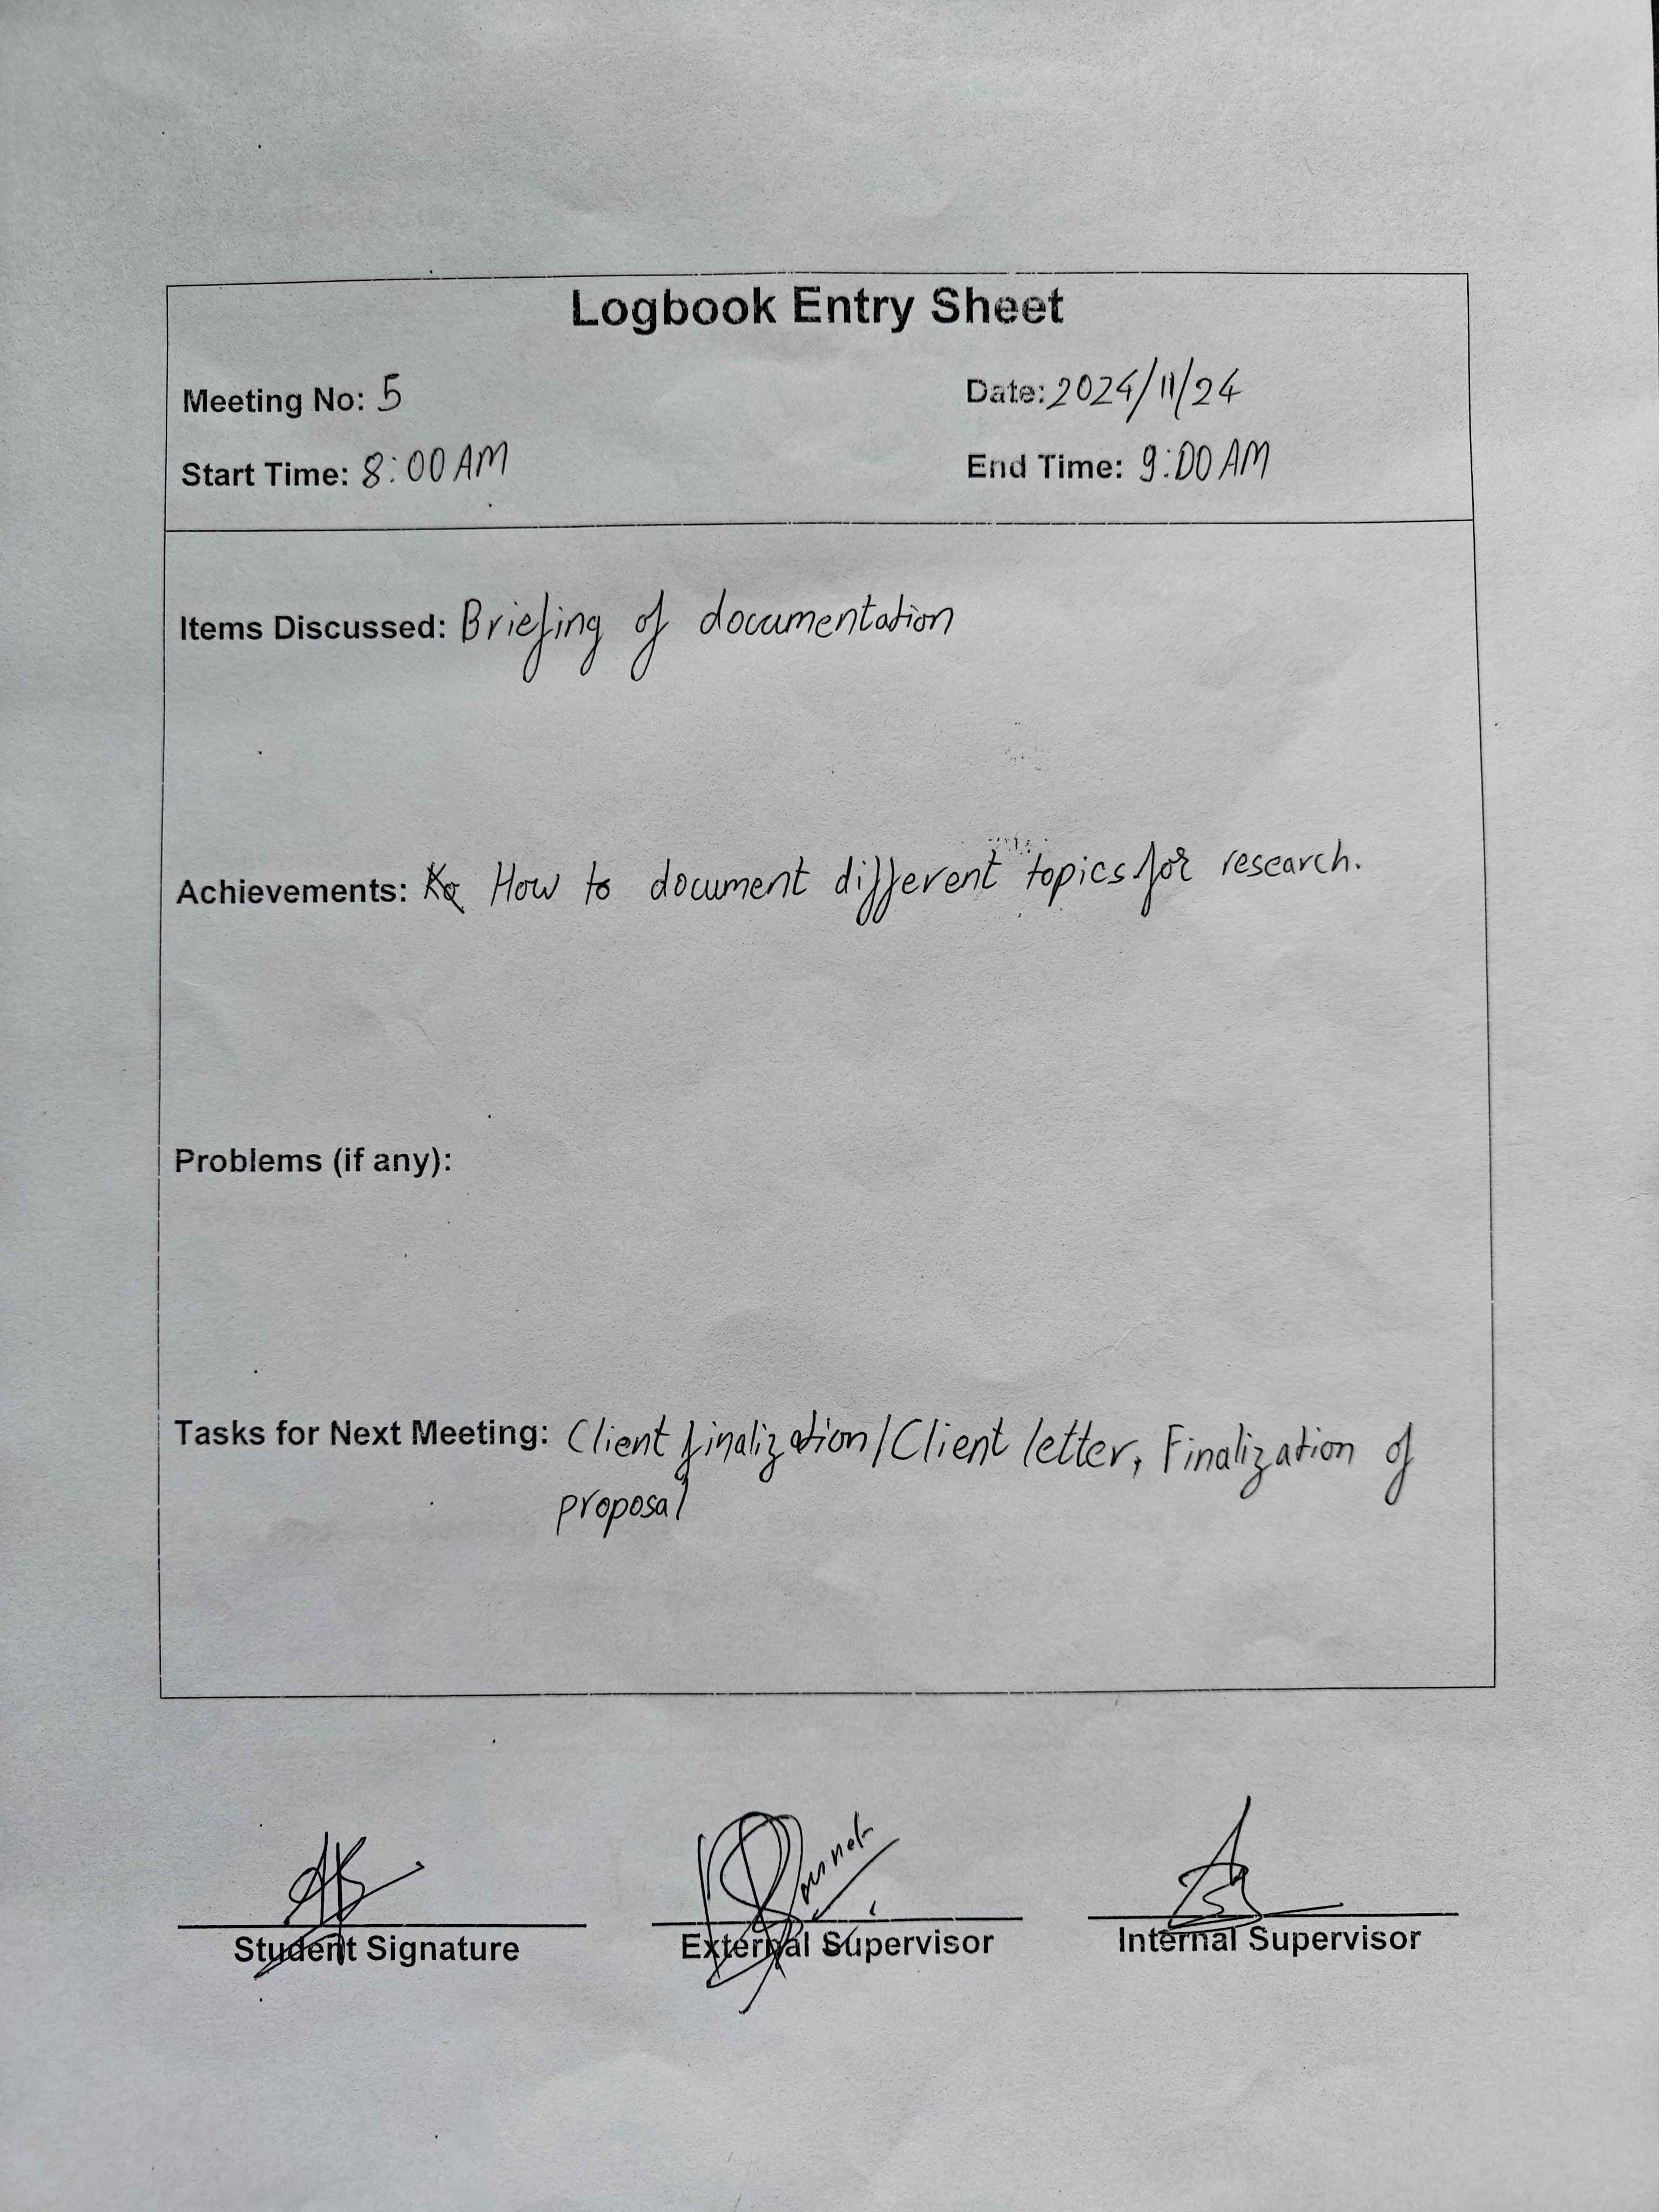 Logbook Entry Sheet
Meeting No: 5 Date: 2024/11/24
Start Time: 8:00 AM End Time: 9:00 AM
Items Discussed: Briefing of documentation
Achievements: How to document different topics for research.
Problems (if any):
Tasks for Next Meeting: Client finalization/Client letter, Finalization of
proposal
Student Signature External Supervisor Internal Supervisor